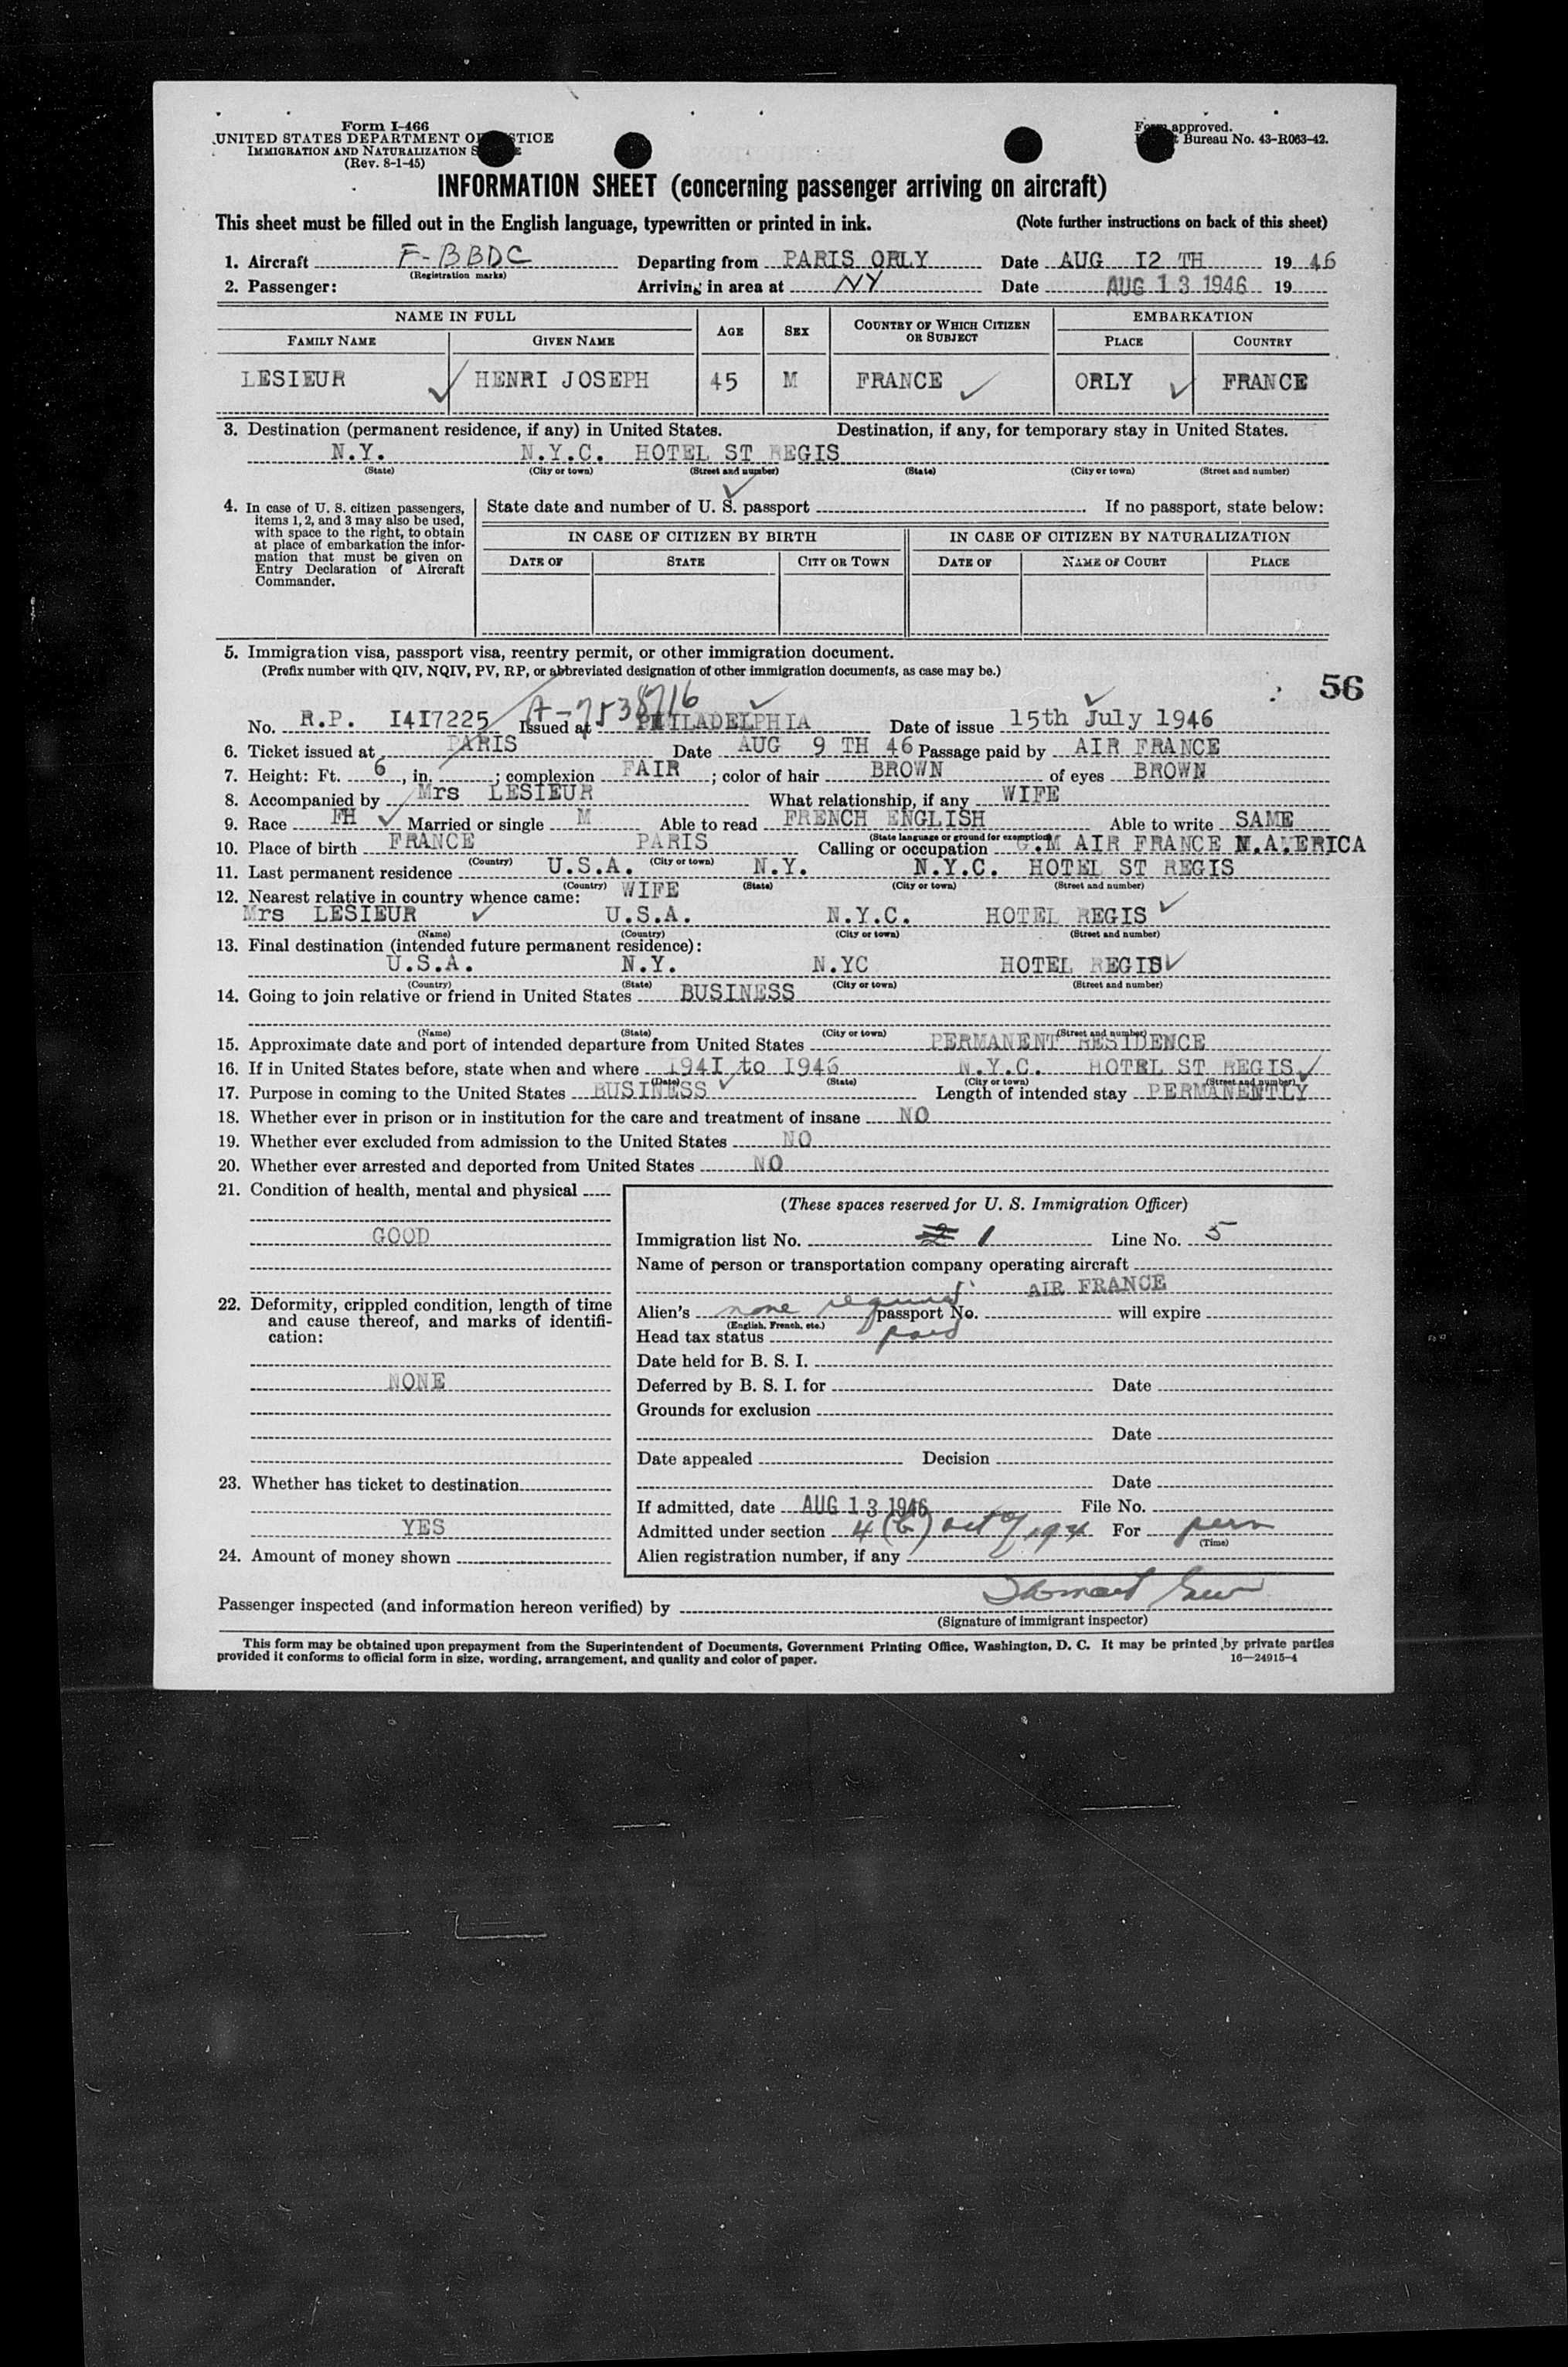 Form I-466
UNITED STATES DEPARTMENT OF JUSTICE
IMMIGRATION AND NATURALIZATION
(Rev. 8-1-45)
Form approved.
Bureau No. 43-R063-42.
INFORMATION SHEET (concerning passenger arriving on aircraft)
This sheet must be filled out in the English language, typewritten or printed in ink. (Note further instructions on back of this sheet)
1. Aircraft F-BBDC Departing from PARIS ORLY Date AUG I2 TH 19 46
(Registration marks)
2. Passenger: Arriving in area at NY Date AUG 13 1946 19
NAME IN FULL AGE SEX COUNTRY OF WHICH CITIZEN OR SUBJECT EMBARKATION
FAMILY NAME GIVEN NAME PLACE COUNTRY
LESIEUR HENRI JOSEPH 45 M FRANCE ORLY FRANCE
3. Destination (permanent residence, if any) in United States. Destination, if any, for temporary stay in United States.
N.Y. N.Y.C. HOTEL ST REGIS
(State) (City or town) (Street and number) (State) (City or town) (Street and number)
4. In case of U. S. citizen passengers, items 1, 2, and 3 may also be used, with space to the right, to obtain at place of embarkation the information that must be given on Entry Declaration of Aircraft Commander.
State date and number of U. S. passport If no passport, state below:
IN CASE OF CITIZEN BY BIRTH IN CASE OF CITIZEN BY NATURALIZATION
DATE OF STATE CITY OR TOWN DATE OF NAME OF COURT PLACE
5. Immigration visa, passport visa, reentry permit, or other immigration document.
(Prefix number with QIV, NQIV, PV, RP, or abbreviated designation of other immigration documents, as case may be.)
56
A-7538716
No. R.P. I4I7225 Issued at PHILADELPHIA Date of issue 15th July 1946
6. Ticket issued at PARIS Date AUG 9 TH 46 Passage paid by AIR FRANCE
7. Height: Ft. 6, in. ; complexion FAIR ; color of hair BROWN of eyes BROWN
8. Accompanied by Mrs LESIEUR What relationship, if any WIFE
9. Race FH Married or single M Able to read FRENCH ENGLISH Able to write SAME
(State language or ground for exemption)
10. Place of birth FRANCE PARIS Calling or occupation G.M AIR FRANCE N.AMERICA
(Country) (City or town)
11. Last permanent residence U.S.A. N.Y. N.Y.C. HOTEL ST REGIS
(Country) (State) (City or town) (Street and number)
12. Nearest relative in country whence came: WIFE
Mrs LESIEUR U.S.A. N.Y.C. HOTEL REGIS
(Name) (Country) (City or town) (Street and number)
13. Final destination (intended future permanent residence):
U.S.A. N.Y. N.YC HOTEL REGIS
(Country) (State) (City or town) (Street and number)
14. Going to join relative or friend in United States BUSINESS
(Name) (State) (City or town) (Street and number)
15. Approximate date and port of intended departure from United States PERMANENT RESIDENCE
16. If in United States before, state when and where 194I to I946 N.Y.C. HOTEL ST REGIS
(Date) (State) (City or town) (Street and number)
17. Purpose in coming to the United States BUSINESS Length of intended stay PERMANENTLY
18. Whether ever in prison or in institution for the care and treatment of insane NO
19. Whether ever excluded from admission to the United States NO
20. Whether ever arrested and deported from United States NO
21. Condition of health, mental and physical
GOOD
22. Deformity, crippled condition, length of time and cause thereof, and marks of identification:
NONE
23. Whether has ticket to destination
YES
24. Amount of money shown
(These spaces reserved for U. S. Immigration Officer)
Immigration list No. 1 Line No. 5
Name of person or transportation company operating aircraft
AIR FRANCE
Alien's none required passport No. will expire
(English, French, etc.)
Head tax status paid
Date held for B. S. I.
Deferred by B. S. I. for Date
Grounds for exclusion
Date
Date appealed Decision
Date
If admitted, date AUG 13 1946 File No.
Admitted under section 4 (b) act of 1924 For perm
(Time)
Alien registration number, if any
Passenger inspected (and information hereon verified) by
(Signature of immigrant inspector)
This form may be obtained upon prepayment from the Superintendent of Documents, Government Printing Office, Washington, D. C. It may be printed by private parties
provided it conforms to official form in size, wording, arrangement, and quality and color of paper. 16—24915-4